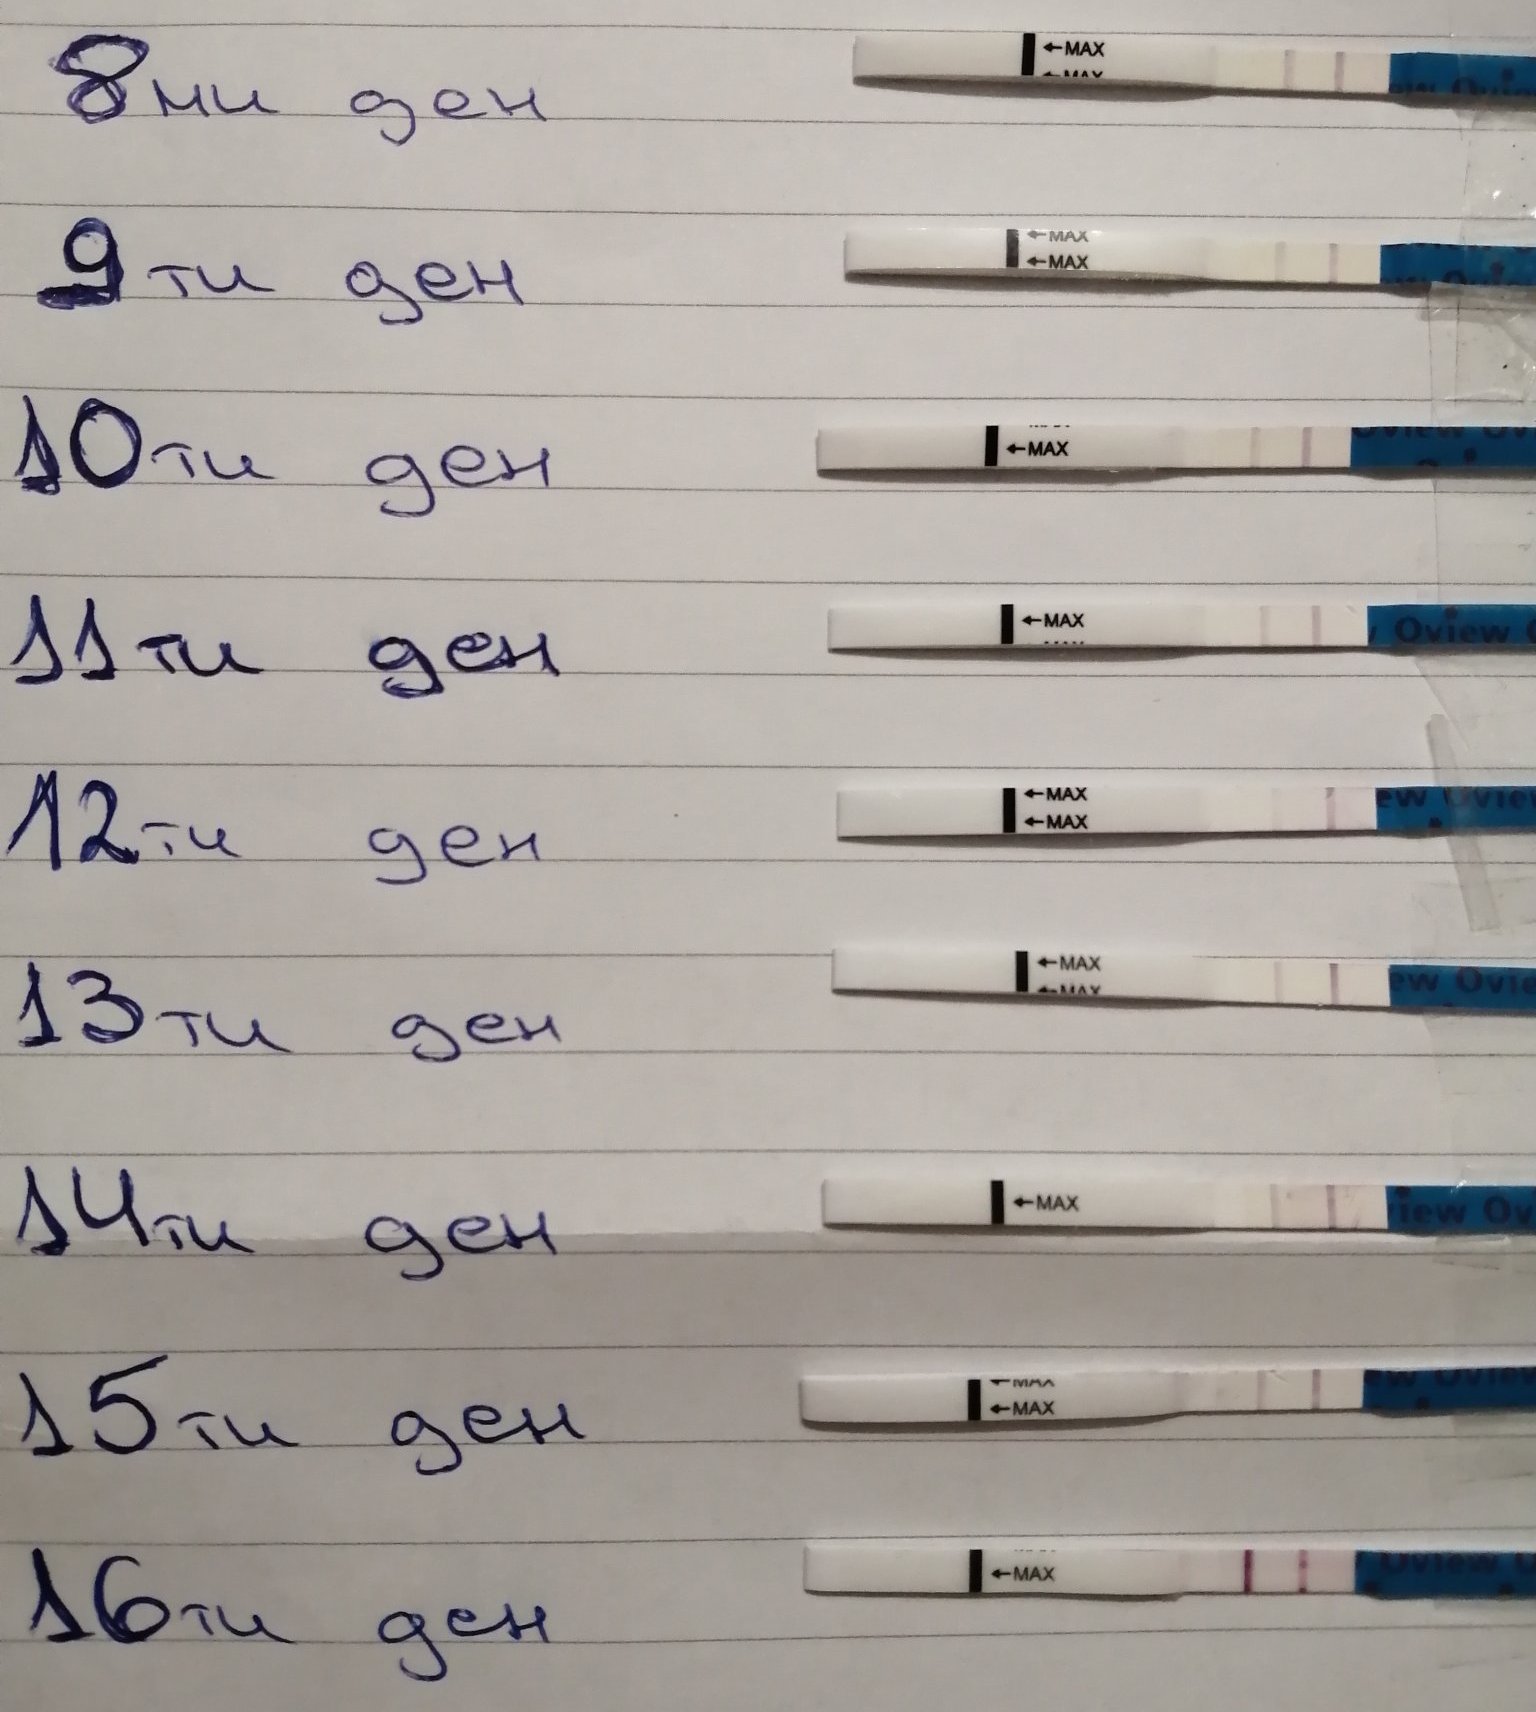 8ми ден ←MAX
←MAX
9ти ден ←MAX
←MAX
10ти ден ←MAX
Oview
11ти ден ←MAX
Oview
12ти ден ←MAX
←MAX
ew Oview
13ти ден ←MAX
←MAX
ew Ovie
14ти ден ←MAX
iew Ov
15ти ден ←MAX
←MAX
ew Oview
16ти ден ←MAX
Oview